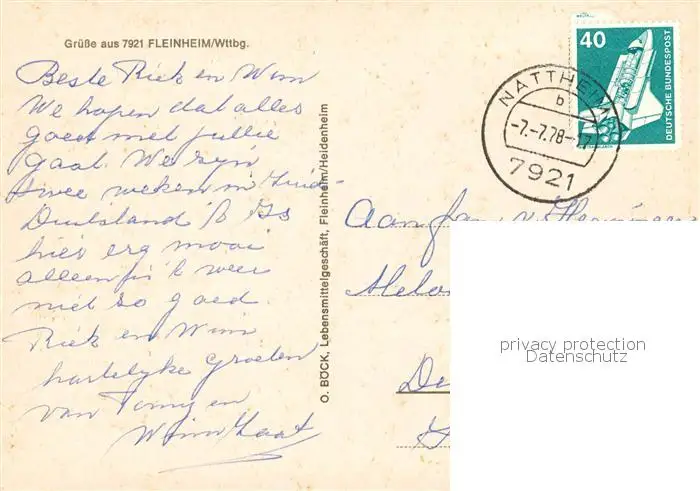 Grüße aus 7921 FLEINHEIM/Wttbg.
Beste Riek en Wim
We hopen dat alles
goed met jullie
gaat. We zijn
twee weken in Zuid-
Duitsland
hier erg mooi
alleen is 't weer
niet zo goed.
Riek en Wim
hartelijke groeten
van Tonny en
Wim
O. BÖCK, Lebensmittelgeschäft, Fleinheim/Heidenheim
40
DEUTSCHE BUNDESPOST
NATTHEIM
b
-7.-7.78-17
7921
Aan fam. v.
privacy protection
Datenschutz